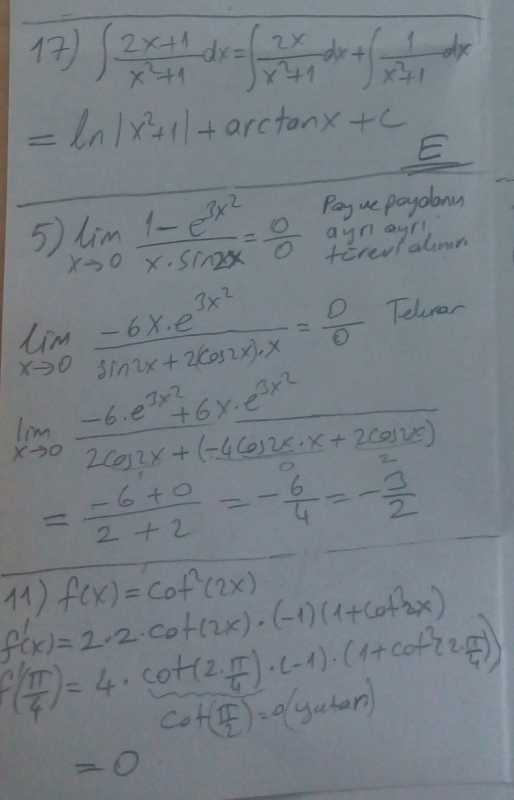 17) ∫ (2x+1)/(x²+1) dx = ∫ 2x/(x²+1) dx + ∫ 1/(x²+1) dx
= ln|x²+1| + arctanx + c
E
5) lim x→0 (1 - e^(3x²))/(x · sin2x) = 0/0 Pay ve paydanın
ayrı ayrı
türevi alınır
lim x→0 (-6x · e^(3x²))/(sin2x + 2(cos2x)·x) = 0/0 Tekrar
lim x→0 (-6 · e^(3x²) + 6x · e^(3x²))/(2cos2x + (-4cos2x · x + 2cos2x))
0 2
= (-6 + 0)/(2 + 2) = -6/4 = -3/2
11) f(x) = cot²(2x)
f'(x) = 2 · 2 · cot(2x) · (-1)(1+cot²2x)
f'(π/4) = 4 · cot(2·π/4) · (-1) · (1+cot²(2·π/4))
cot(π/2) = 0 (yutan)
= 0